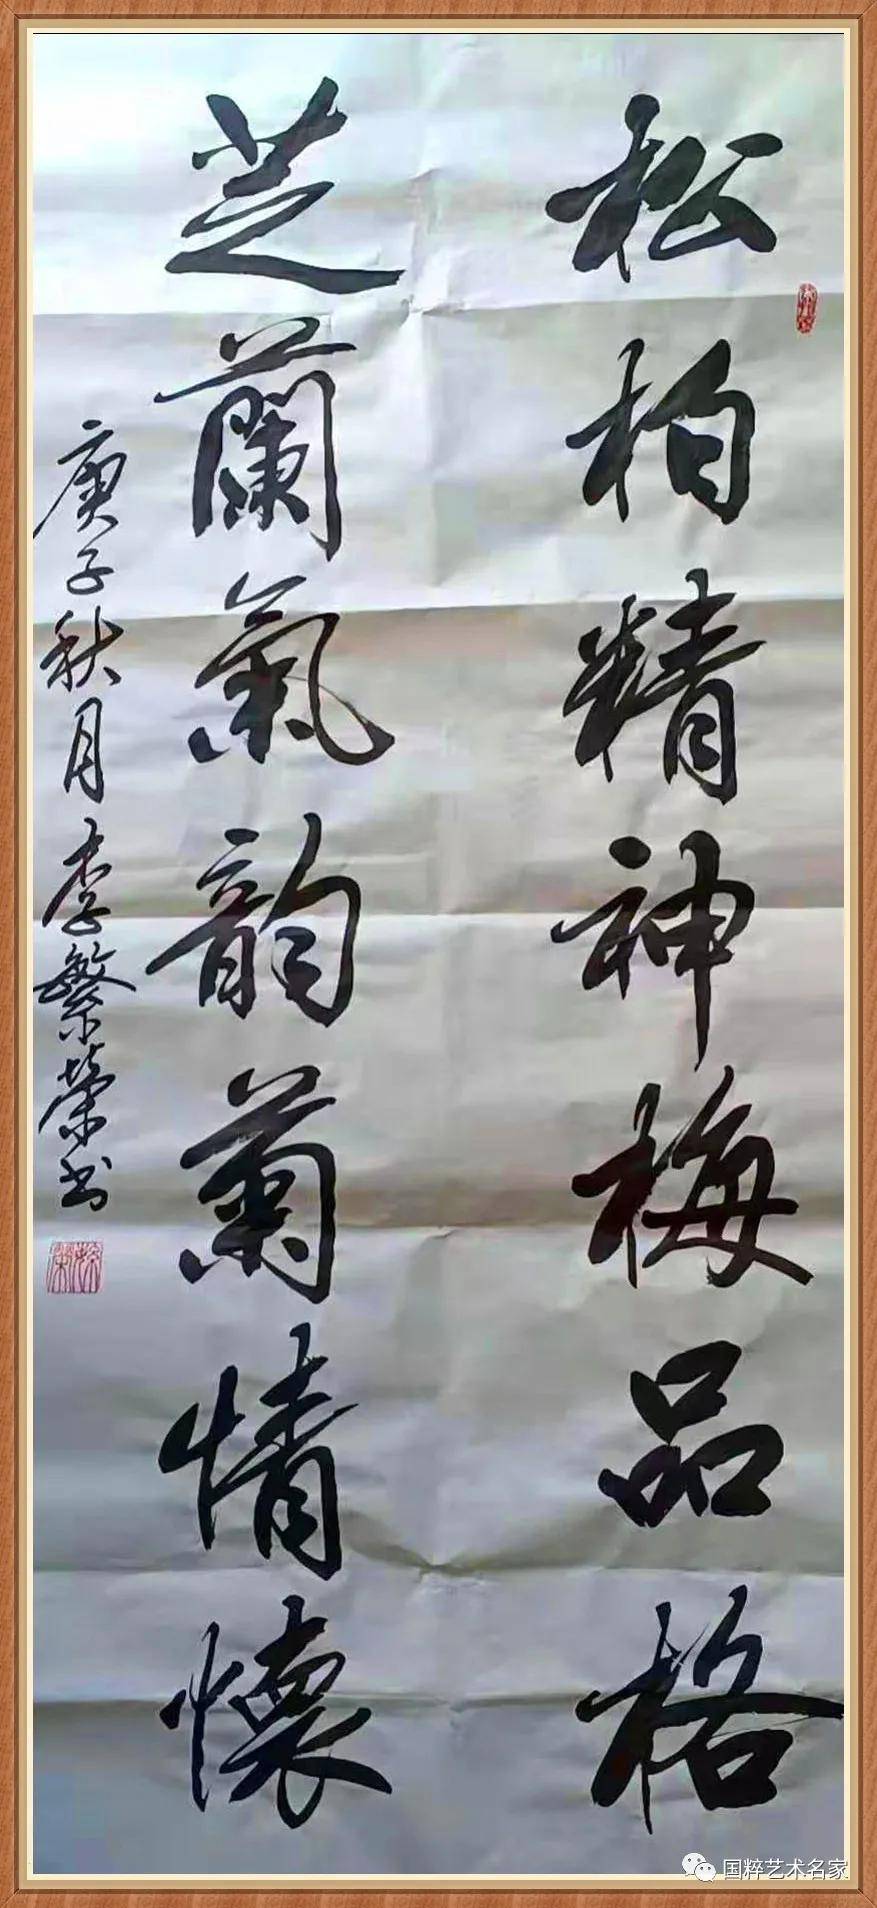 松柏精神梅品格
芝蘭氣韵菊情懷
庚子秋月李繁荣书
国粹艺术名家